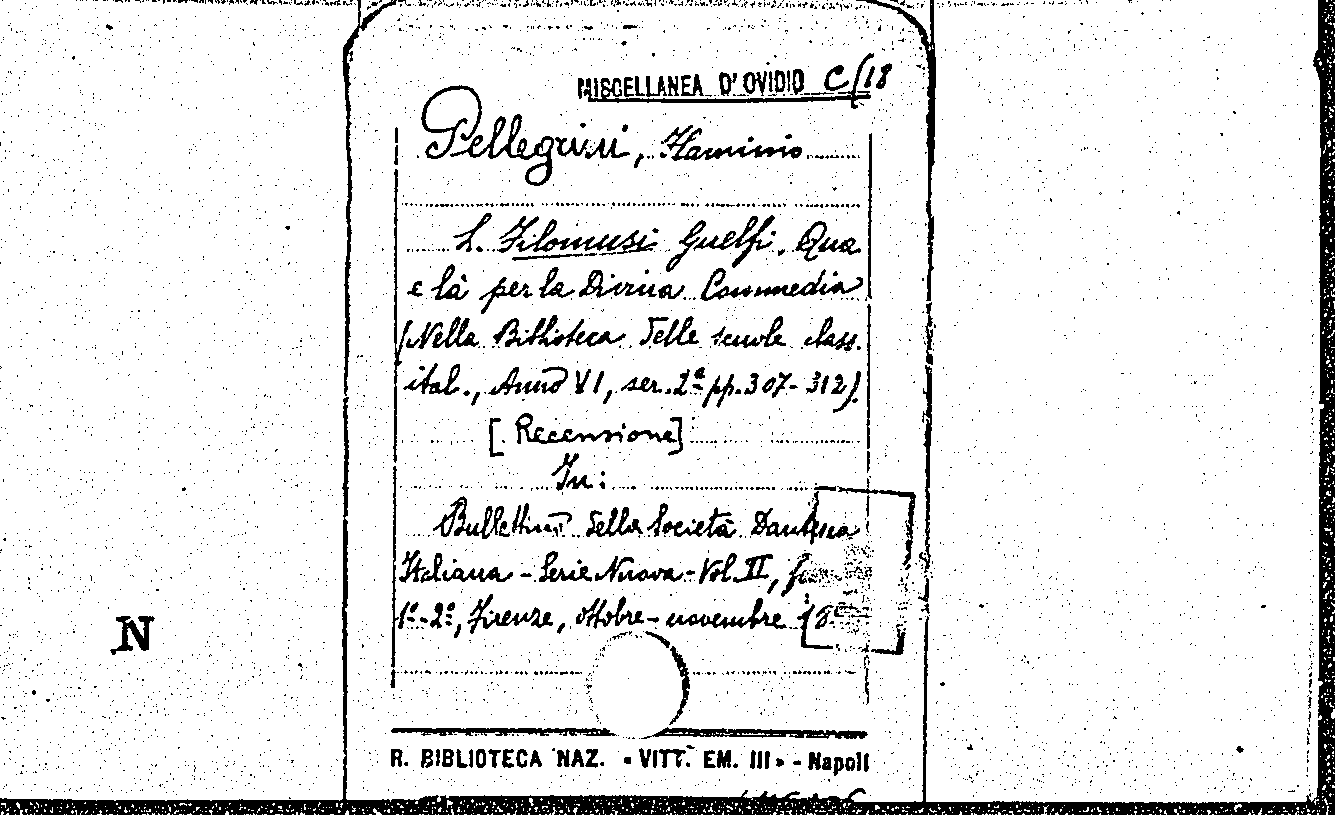 MISCELLANEA D'OVIDIO C/18
Pellegrini, Flaminio
L. Filomusi Guelfi. Qua
e là per la Divina Commedia
(Nella Biblioteca delle scuole class.
ital., Anno VI, ser. 2ª pp. 307-312).
[Recensione]
In:
Bullettino della Società Dantesca
Italiana - Serie Nuova - Vol. II,
1º-2º, Firenze, ottobre-novembre
N
R. BIBLIOTECA NAZ. « VITT. EM. III » - Napoli